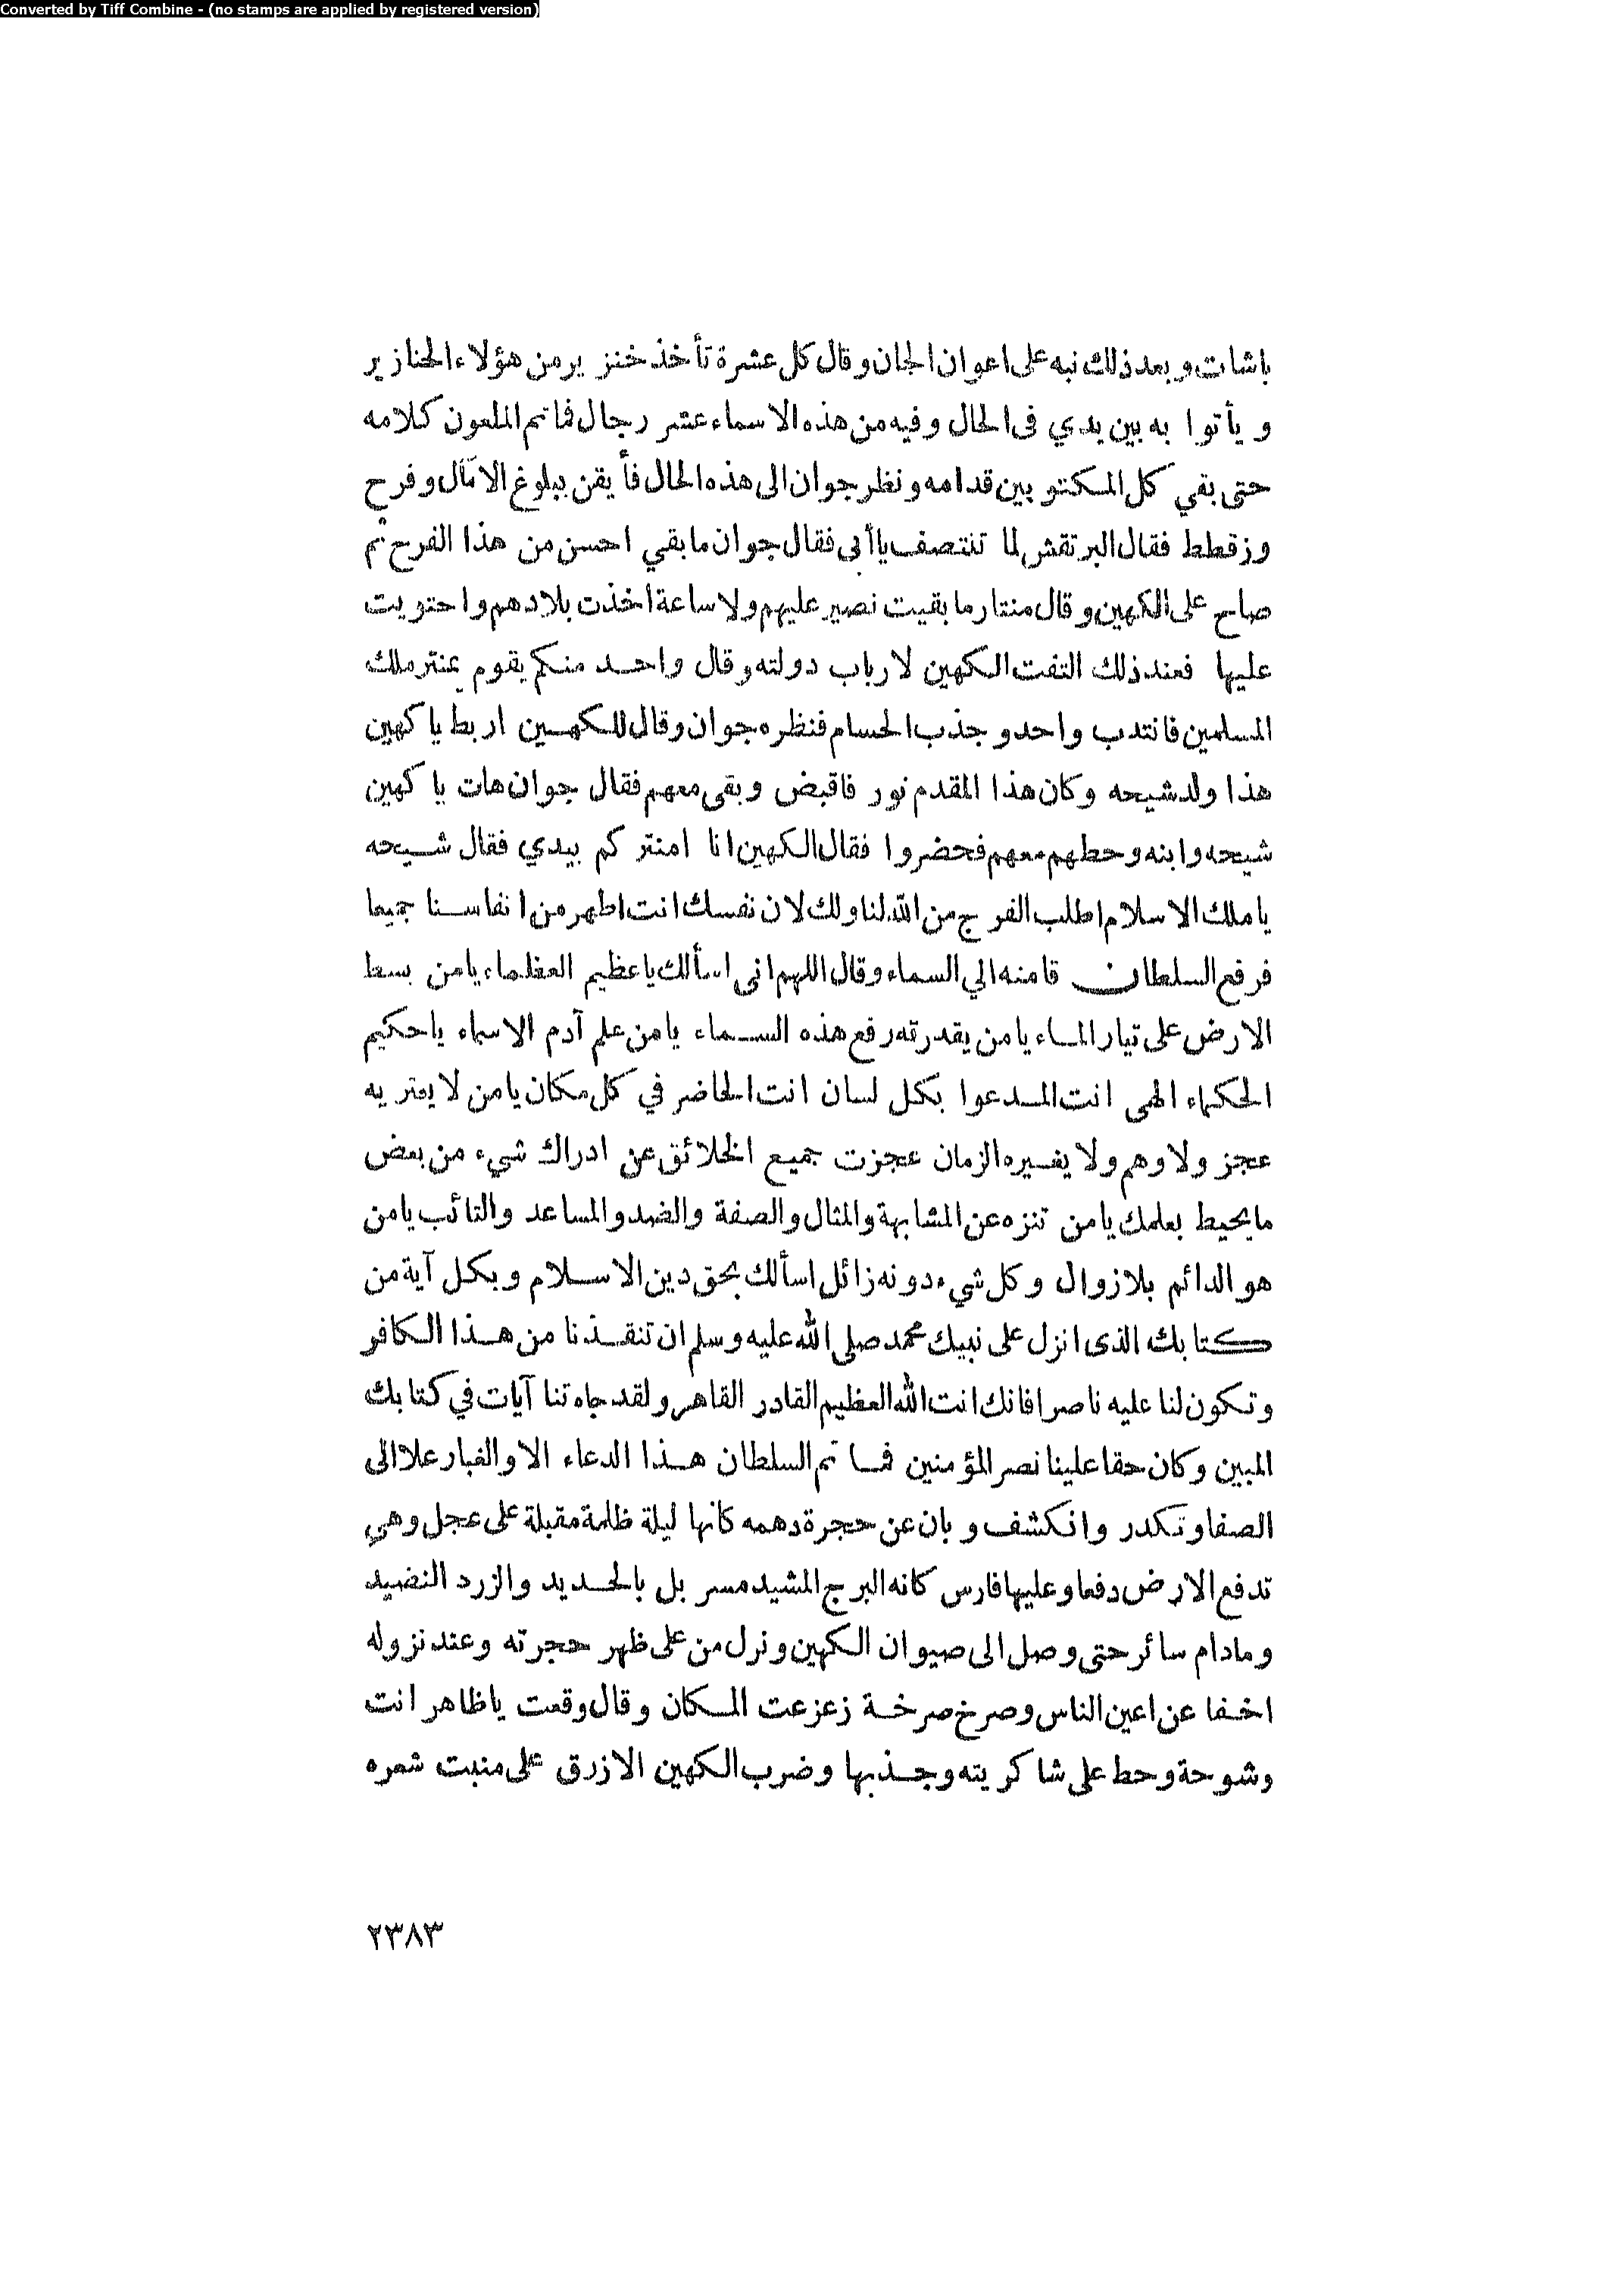 Converted by Tiff Combine - (no stamps are applied by registered version)
باشات وبعد ذلك نبه على اعوان الجان وقال كل عشرة تأخذ خنزير من هؤلاء الخنازير
ويأتوا به بين يدي في الحال وفيه من هذه الاسماء عشر رجال فماتم الملعون كلامه
حتى بقي كل المكتوبين قدامه ونظر جوان الى هذه الحال فأيقن ببلوغ الآمال وفرح
وزقطط فقال البرتقش لما تنتصف يا أبى فقال جوان ما بقي احسن من هذا الفرح ثم
صاح على الكهين وقال منتار ما بقيت نصير عليهم ولا ساعة اخذت بلادهم واحتويت
عليها فعند ذلك التفت الكهين لارباب دولته وقال واحد منكم يقوم بمنتر ملك
المسلمين فانتدب واحد وجذب الحسام فنظره جوان وقال للكهين اربط يا كهين
هذا ولد شيحه وكان هذا المقدم نور فاقبض وبقى معهم فقال جوان هات يا كهين
شيحه وابنه وحطهم معهم فحضروا فقال الكهين انا امنتركم بيدي فقال شيحه
يا ملك الاسلام اطلب الفرج من الله لنا ولك لان نفسك انت اطهر من انفاسنا جميعا
فرفع السلطان قامته الي السماء وقال اللهم انى اسألك يا عظيم العظماء يا من بسط
الارض على تيار الماء يا من يقدرته رفع هذه السماء يا من علم آدم الاسماء يا حكيم
الحكماء الهى انت المدعوا بكل لسان انت الحاضر في كل مكان يا من لا يعتريه
عجز ولا وهم ولا يغيره الزمان عجزت جميع الخلائق عن ادراك شيء من بعض
ما يحيط بعلمك يا من تنزه عن المشابهة والمثال والصفة والضد والمساعد والنائب يا من
هو الدائم بلا زوال وكل شيء دونه زائل اسألك بحق دين الاسلام وبكل آية من
كتابك الذى انزل على نبيك محمد صلى الله عليه وسلم ان تنقذنا من هذا الكافر
وتكون لنا عليه ناصرا فانك انت الله العظيم القادر القاهر ولقد جاءتنا آيات في كتابك
المبين وكان حقا علينا نصر المؤمنين فما تم السلطان هذا الدعاء الا والغبار علا الى
الصفا وتكدر وانكشف وبان عن حجرة دهمه كانها ليلة ظلمة مقبلة على عجل وهي
تدفع الارض دفعا وعليها فارس كانه البرج المشيد مسربل بالحديد والزرد النضيد
ومادام سائر حتى وصل الى صيوان الكهين ونزل من على ظهر حجرته وعند نزوله
اخفا عن اعين الناس وصرخ صرخة زعزعت المكان وقال وقعت يا ظاهر انت
وشوحة وحط على شاكريته وجذبها وضرب الكهين الازرق على منبت شعره
٢٣٨٣